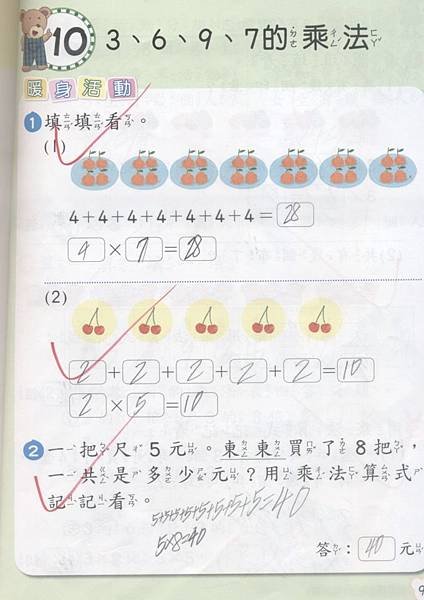 10 3、6、9、7的乘法
暖身活動
1 填填看。
(1)
4+4+4+4+4+4+4=28
4×7=28
(2)
2+2+2+2+2=10
2×5=10
2 一把尺5元。東東買了8把，
一共是多少元？用乘法算式
記記看。
5+5+5+5+5+5+5+5=40
5×8=40
答：40元
9